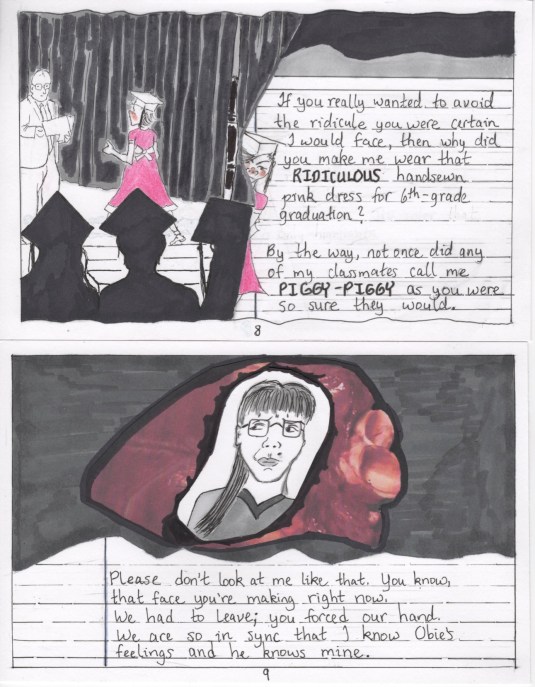 If you really wanted to avoid
the ridicule you were certain
I would face, then why did
you make me wear that
RIDICULOUS handsewn
pink dress for 6th-grade
graduation?
By the way, not once did any
of my classmates call me
PIGGY-PIGGY as you were
so sure they would.
8
Please don't look at me like that. You know,
that face you're making right now.
We had to leave; you forced our hand.
We are so in sync that I know Obie's
feelings and he knows mine.
9